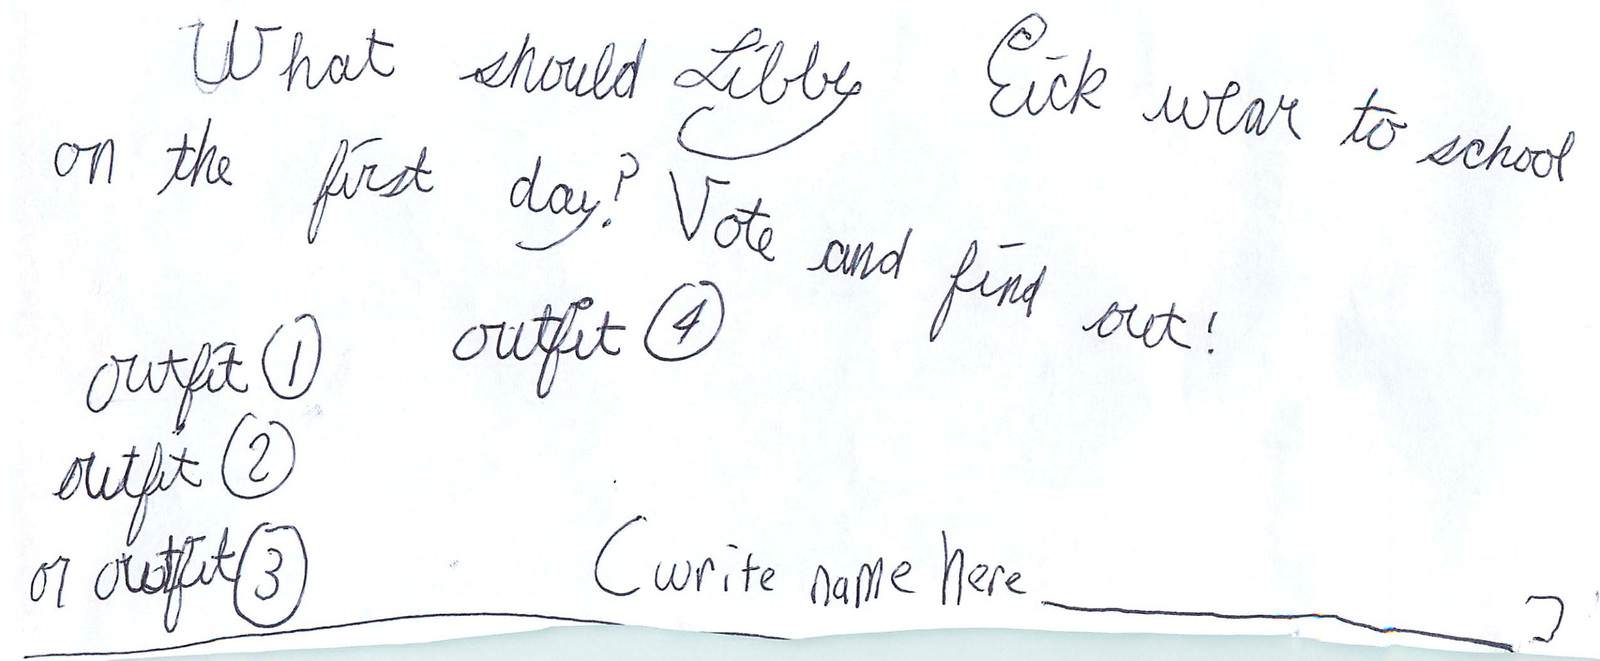 What should Libby Eick wear to school
on the first day? Vote and find out!
outfit 1 outfit 4
outfit 2
or outfit 3
(write name here ___)